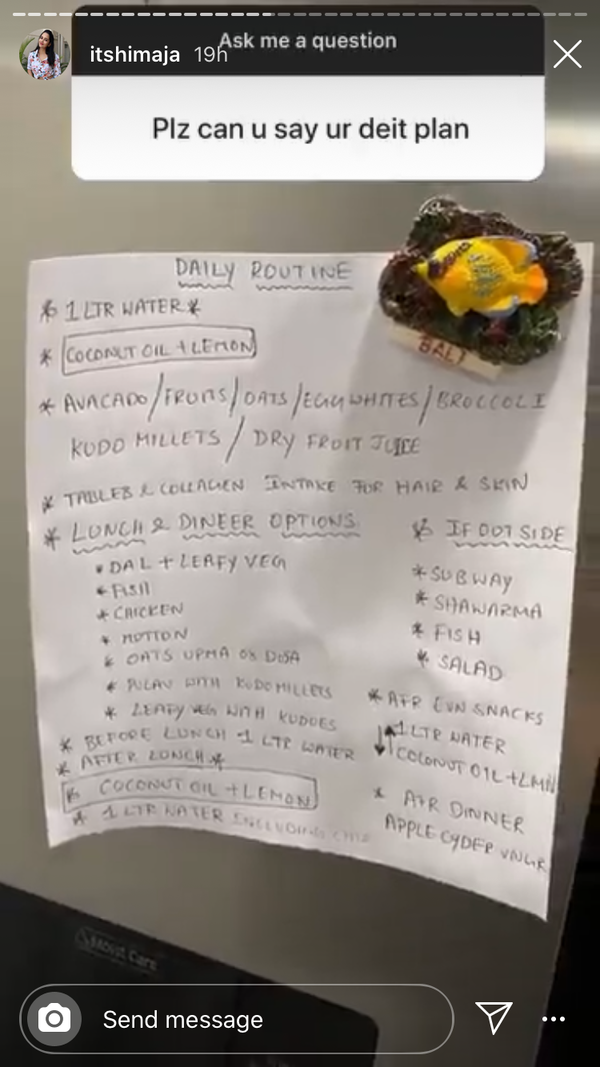 Ask me a question
itshimaja 19h
Plz can u say ur deit plan
DAILY ROUTINE
* 1 LTR WATER *
* COCONUT OIL + LEMON
BALI
* AVACADO/FRUITS/OATS/EGGWHITES/BROCCOLI
KUDO MILLETS / DRY FROIT JUICE
* TABLEB & COLLAGEN INTAKE FOR HAIR & SKIN
* LUNCH & DINEER OPTIONS
* DAL + LEAFY VEG
* FISH
* CHICKEN
* MOTTON
* OATS UPMA OR DOSA
* PULAV WITH KUDOMILLETS
* LEAFY VEG WITH KUDOES
* BEFORE LUNCH 1 LTR WATER
* AFTER LUNCH *
* COCONUT OIL + LEMON
* 1 LTR WATER INCLUDING
* IF OOT SIDE
* SUBWAY
* SHAWARMA
* FISH
* SALAD
* AFR EVN SNACKS
1 LTR WATER
COCONUT OIL + LMN
* AFR DINNER
APPLE CYDER VNGR
Moist Care
Send message